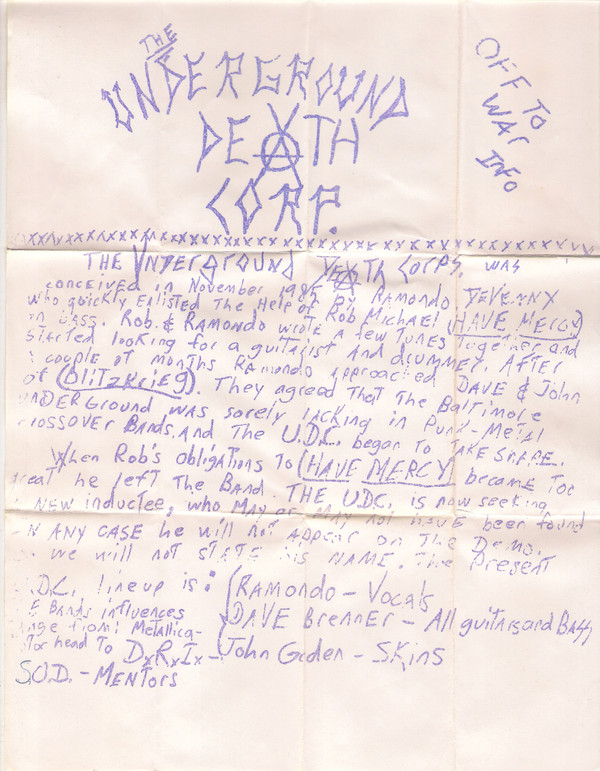 THE
UNDERGROUND
DEATH
CORP.
OFF TO
WAR
INFO
THE UNDERGROUND DEATH CORPS. WAS
conceived in November 1985 By RAMONDO DEVENNX
who quickly Enlisted The Help of Rob Michael (HAVE MERCY)
on BASS. Rob. & Ramondo wrote a few tunes together and
started looking for a guitarist and drummer. After
a couple of months Ramondo approached DAVE & John
of (BlITZKrIEg). They agreed that The Baltimore
UNDERGround was sorely lacking in Punk-Metal
crossover Bands. And The U.D.C. began to TAKE SHAPE.
When Rob's obligations to (HAVE MERCY) become Too
great he left The Band. THE U.D.C. is now seeking
a NEW inductee, who MAY or MAY not HAVE been found
IN ANY CASE he will not Appear on The Demo.
so we will not STATE his NAME. The Present
U.D.C. lineup is: RAMONDO - Vocals
DAVE Brenner - All guitars and Bass
John Geden - Skins
THE BANDS influences
range from: Metallica-
Motorhead to DxRxIx-
S.O.D. - MENTORS